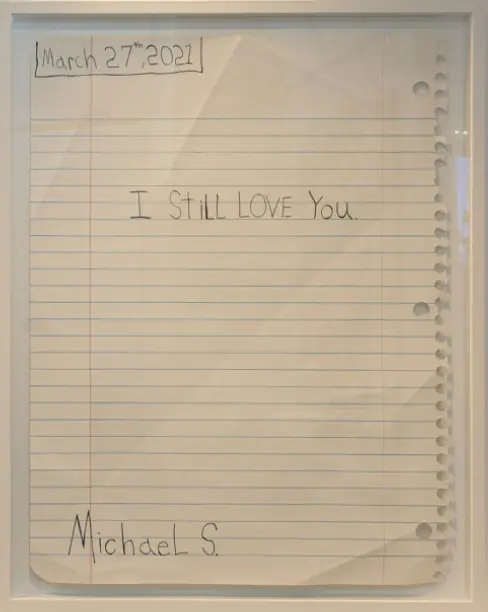 March 27th, 2021
I StiLL LOVE You.
MichaeL S.